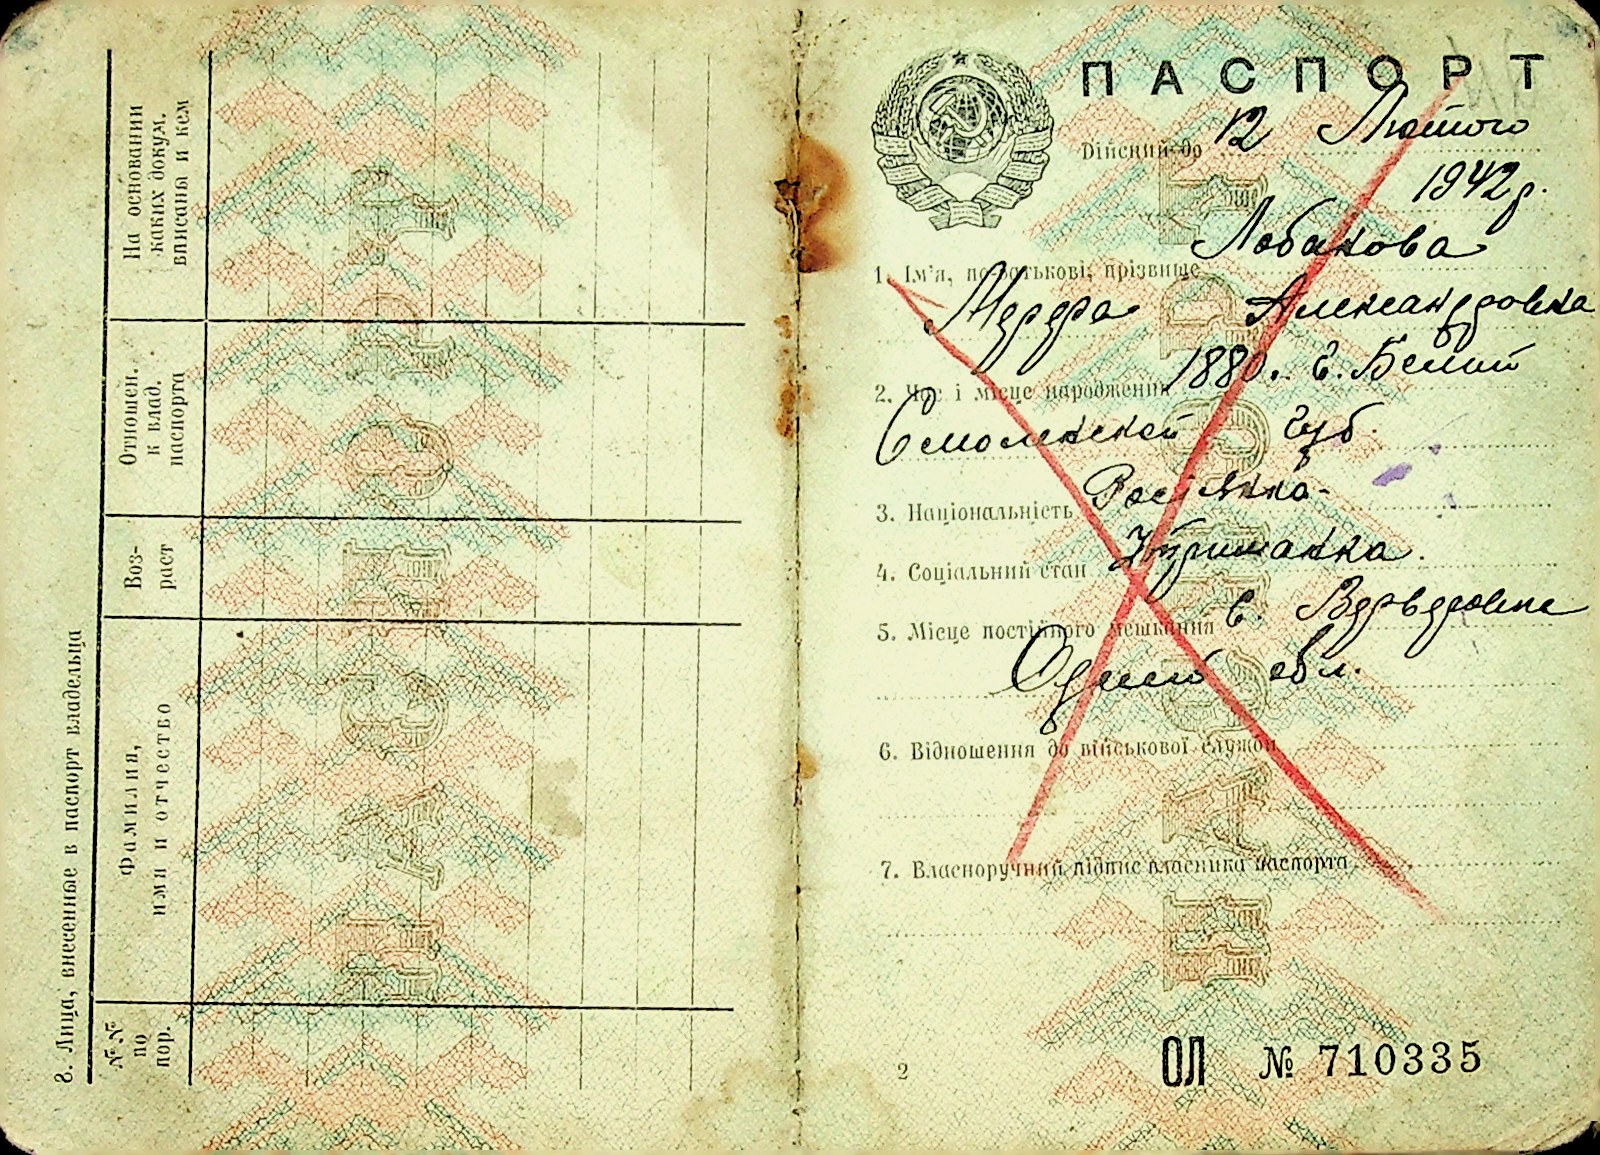 8. Лица, внесенные в паспорт владельца
№№
по
пор.
Фамилия,
имя и отчество
Воз-
раст
Отношен.
к влад.
паспорта
На основании
каких докум.
вписаны и кем
ПАСПОРТ
ПАСПОРТ
Дійсний до 12 Лютого
1942 р.
1. Ім'я, по-батькові, прізвище Лобанова
Александровна
2. Час і місце народження 1880. г. Белий
Смоленской губ.
3. Національність Росіянка
4. Соціальний стан Утриманка.
5. Місце постійного мешкання с.
обл.
6. Відношення до військової служби
7. Власноручний підпис власника паспорта
ПАСПОРТ
2
ОЛ № 710335